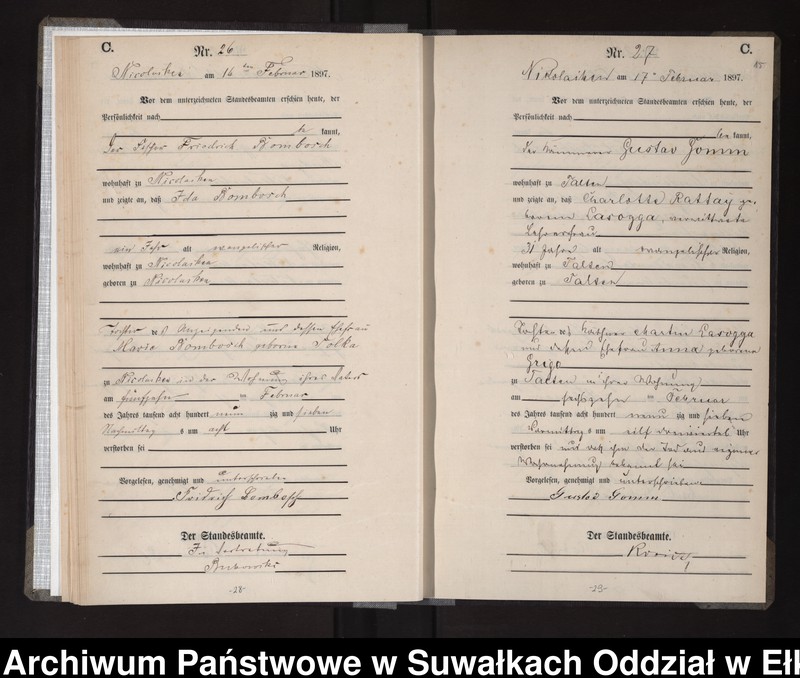 C.
Nr. 26
Nicolaiken am 16 ten Februar 1897.
Vor dem unterzeichneten Standesbeamten erschien heute, der
Persönlichkeit nach
kannt,
Der Fischer Friedrich Dombosch
wohnhaft zu Nicolaiken
und zeigte an, daß Ida Dombosch
ein Jahr alt evangelischer Religion,
wohnhaft zu Nicolaiken
geboren zu Nicolaiken
Tochter des Anzeigenden und dessen Ehefrau
Marie Dombosch geborene
zu Nicolaiken in der Wohnung ihres Vaters
am fünfzehn ten Februar
des Jahres tausend acht hundert neun zig und sieben
Nachmittag s um acht Uhr
verstorben sei
Vorgelesen, genehmigt und unterschrieben
Fridrich Dombosch
Der Standesbeamte.
In Vertretung
-28-
Nr. 27
C.
Nikolaiken am 17 Februar 1897.
Vor dem unterzeichneten Standesbeamten erschien heute, der
Persönlichkeit nach
be kannt,
Der Kämmerer Gustav Gomm
wohnhaft zu Talten
und zeigte an, daß Charlotte Rattay ge-
borene Casogga, verwittwete
Lehrerfrau
31 Jahre alt evangelischer Religion,
wohnhaft zu Talten
geboren zu Talten
Tochter des Martin Casogga
und dessen Ehefrau Anna geborene
Grigo
zu Talten in ihrer Wohnung
am sechszehn ten Februar
des Jahres tausend acht hundert neun zig und sieben
Vormittag s um elf dreiviertel Uhr
verstorben sei und daß ihm der Tod aus eigener
Wahrnehmung bekannt sei
Vorgelesen, genehmigt und unterschrieben
Gustav Gomm
Der Standesbeamte.
-29-
Archiwum Państwowe w Suwałkach Oddział w Ełk